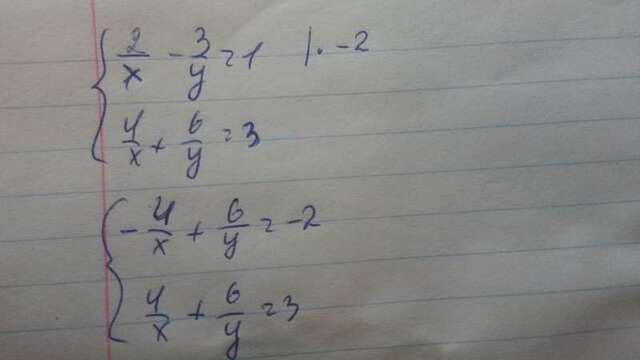 { 2/x - 3/y = 1 | · -2
4/x + 6/y = 3
{ - 4/x + 6/y = -2
4/x + 6/y = 3